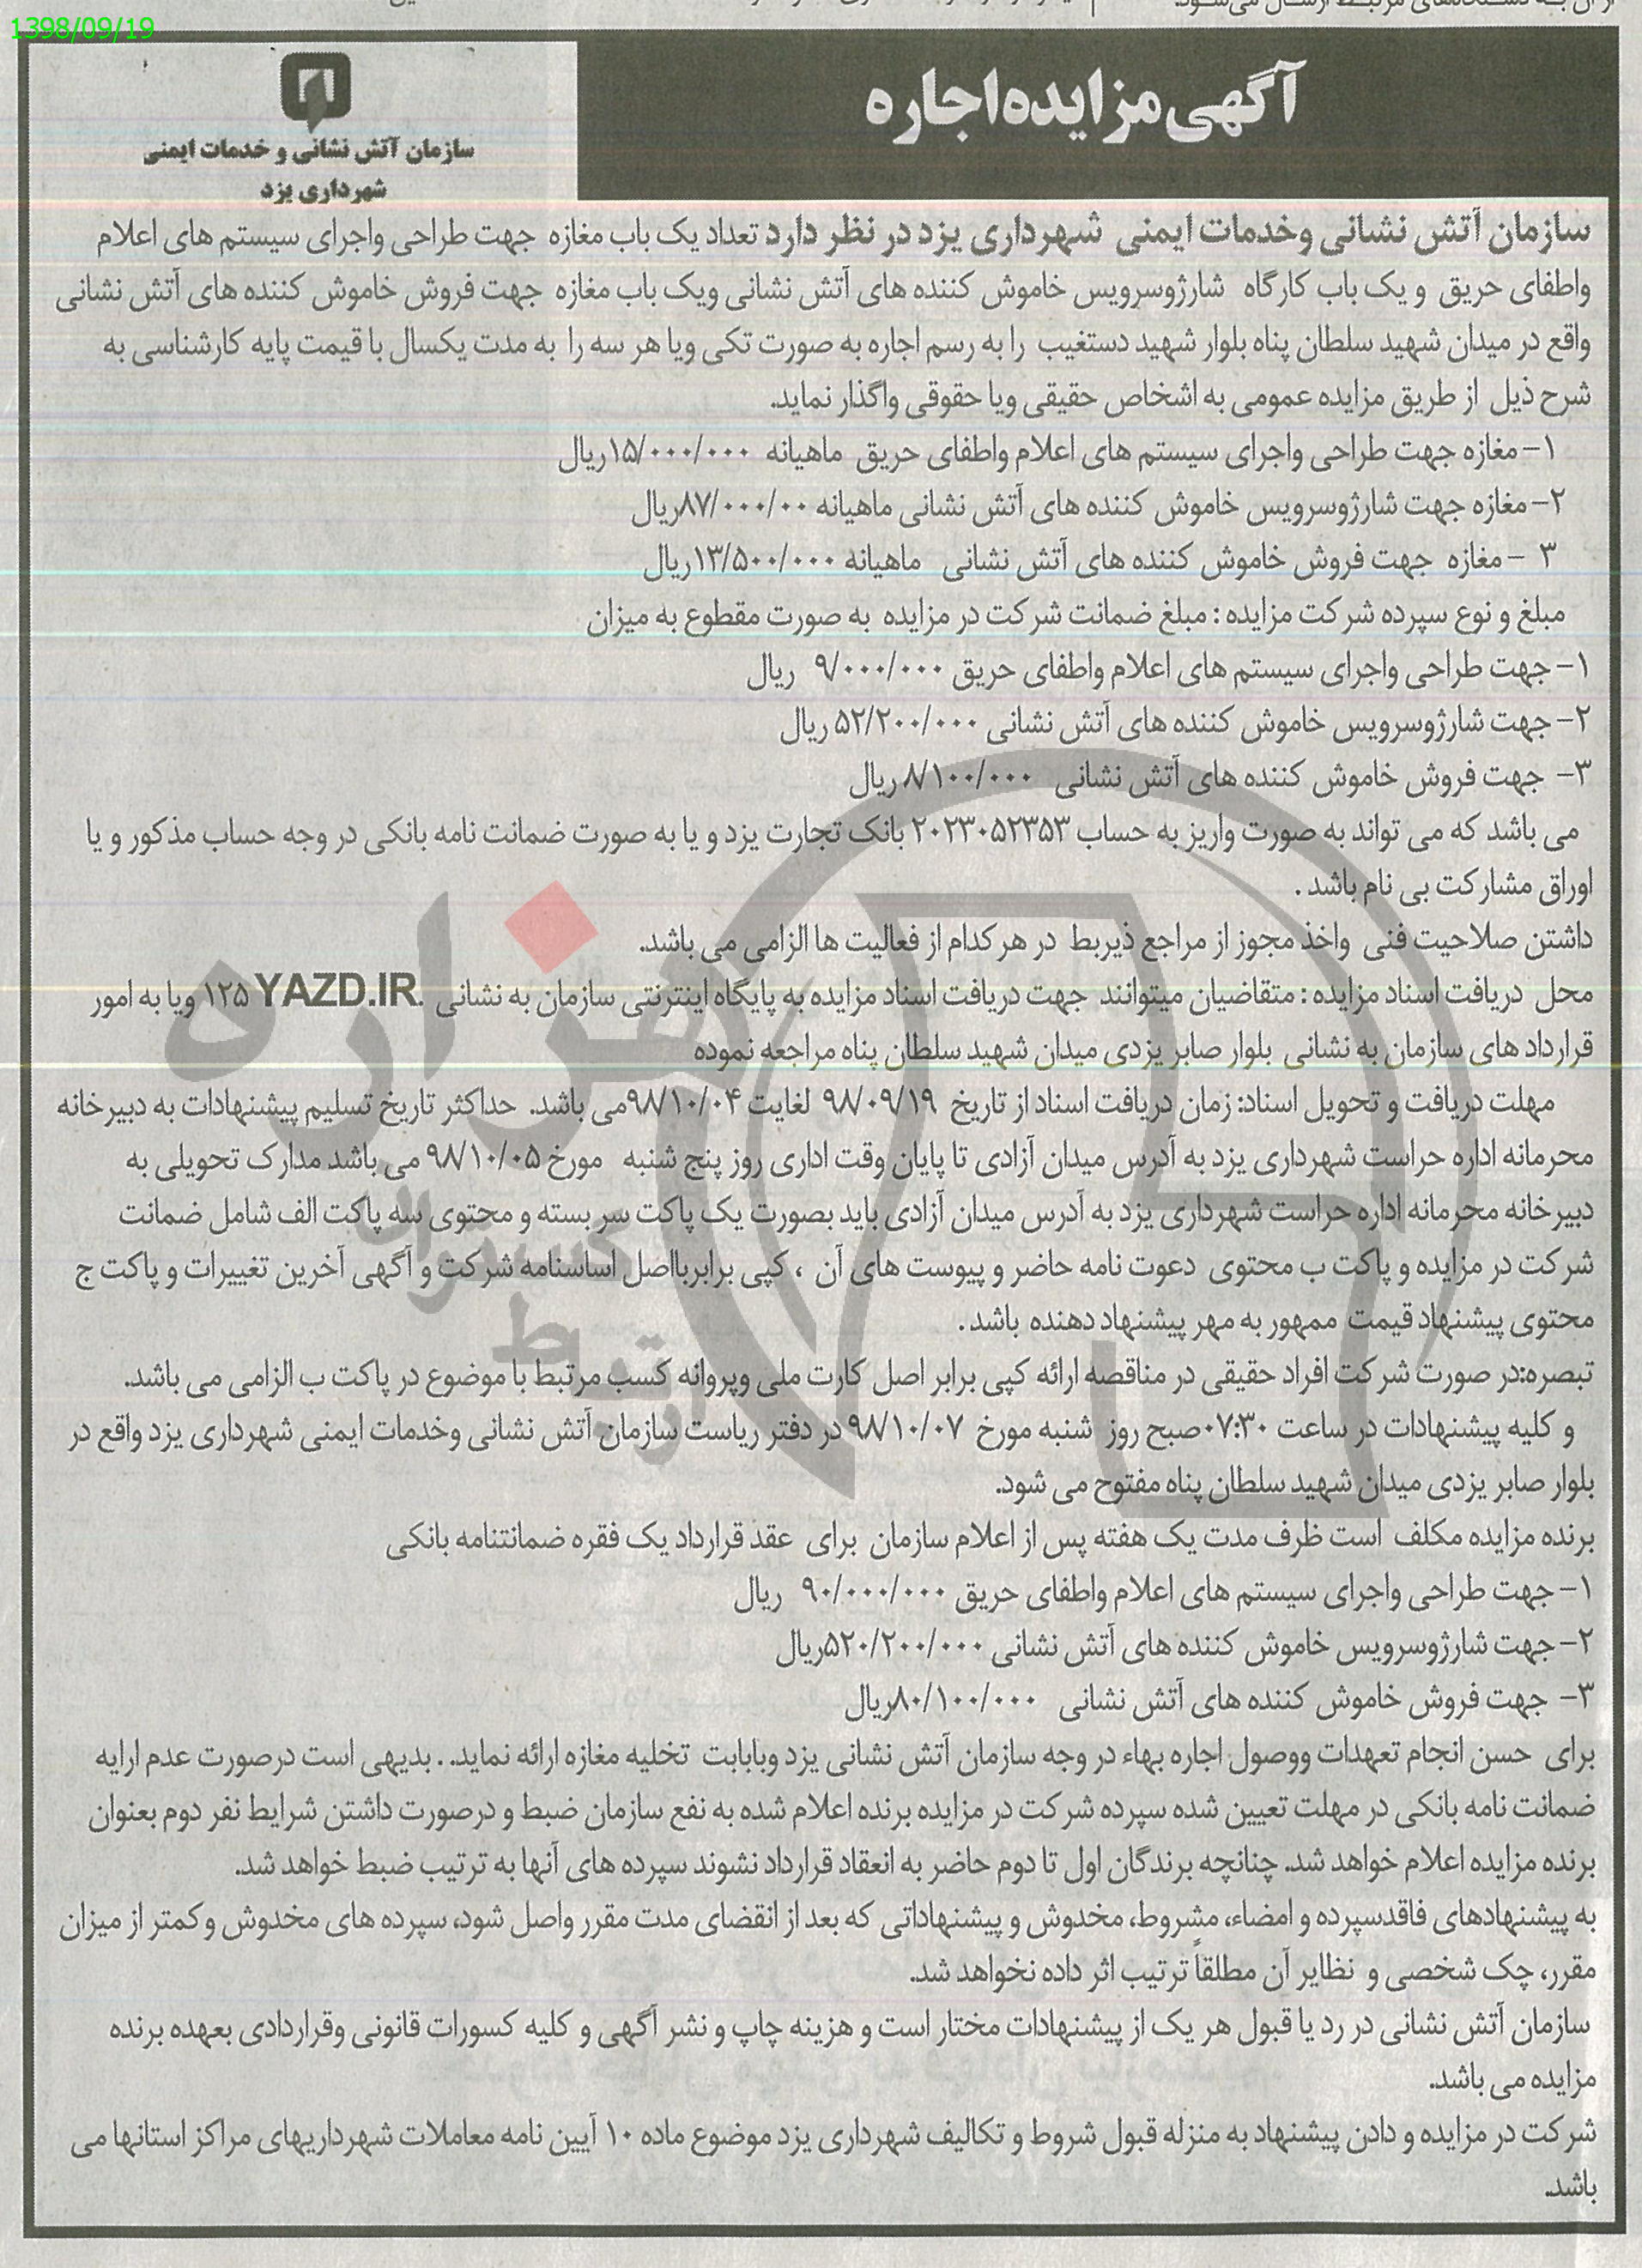 1398/09/19
آگهی مزایده اجاره
سازمان آتش نشانی و خدمات ایمنی
شهرداری یزد
سازمان آتش نشانی وخدمات ایمنی شهرداری یزد در نظر دارد تعداد یک باب مغازه جهت طراحی واجرای سیستم های اعلام
واطفای حریق و یک باب کارگاه شارژوسرویس خاموش کننده های آتش نشانی ویک باب مغازه جهت فروش خاموش کننده های آتش نشانی
واقع در میدان شهید سلطان پناه بلوار شهید دستغیب را به رسم اجاره به صورت تکی ویا هر سه را به مدت یکسال با قیمت پایه کارشناسی به
شرح ذیل از طریق مزایده عمومی به اشخاص حقیقی ویا حقوقی واگذار نماید.
۱- مغازه جهت طراحی واجرای سیستم های اعلام واطفای حریق ماهیانه ۱۵/۰۰۰/۰۰۰ریال
۲- مغازه جهت شارژوسرویس خاموش کننده های آتش نشانی ماهیانه ۸۷/۰۰۰/۰۰ریال
۳ - مغازه جهت فروش خاموش کننده های آتش نشانی ماهیانه ۱۳/۵۰۰/۰۰۰ریال
مبلغ و نوع سپرده شرکت مزایده : مبلغ ضمانت شرکت در مزایده به صورت مقطوع به میزان
۱- جهت طراحی واجرای سیستم های اعلام واطفای حریق ۹/۰۰۰/۰۰۰ ریال
۲- جهت شارژوسرویس خاموش کننده های آتش نشانی ۵۲/۲۰۰/۰۰۰ ریال
۳- جهت فروش خاموش کننده های آتش نشانی ۸/۱۰۰/۰۰۰ ریال
می باشد که می تواند به صورت واریز به حساب ۲۰۲۳۰۵۲۳۵۳ بانک تجارت یزد و یا به صورت ضمانت نامه بانکی در وجه حساب مذکور و یا
اوراق مشارکت بی نام باشد .
داشتن صلاحیت فنی واخذ مجوز از مراجع ذیربط در هر کدام از فعالیت ها الزامی می باشد.
محل دریافت اسناد مزایده : متقاضیان میتوانند جهت دریافت اسناد مزایده به پایگاه اینترنتی سازمان به نشانی .YAZD.IR ۱۲۵ ویا به امور
قرارداد های سازمان به نشانی بلوار صابر یزدی میدان شهید سلطان پناه مراجعه نموده
مهلت دریافت و تحویل اسناد: زمان دریافت اسناد از تاریخ ۹۸/۰۹/۱۹ لغایت ۹۸/۱۰/۰۴می باشد. حداکثر تاریخ تسلیم پیشنهادات به دبیرخانه
محرمانه اداره حراست شهرداری یزد به آدرس میدان آزادی تا پایان وقت اداری روز پنج شنبه مورخ ۹۸/۱۰/۰۵ می باشد مدارک تحویلی به
دبیرخانه محرمانه اداره حراست شهرداری یزد به آدرس میدان آزادی باید بصورت یک پاکت سر بسته و محتوی سه پاکت الف شامل ضمانت
شرکت در مزایده و پاکت ب محتوی دعوت نامه حاضر و پیوست های آن ، کپی برابربااصل اساسنامه شرکت و آگهی آخرین تغییرات و پاکت ج
محتوی پیشنهاد قیمت ممهور به مهر پیشنهاد دهنده باشد .
تبصره:در صورت شرکت افراد حقیقی در مناقصه ارائه کپی برابر اصل کارت ملی وپروانه کسب مرتبط با موضوع در پاکت ب الزامی می باشد.
و کلیه پیشنهادات در ساعت ۰۷:۳۰صبح روز شنبه مورخ ۹۸/۱۰/۰۷ در دفتر ریاست سازمان آتش نشانی وخدمات ایمنی شهرداری یزد واقع در
بلوار صابر یزدی میدان شهید سلطان پناه مفتوح می شود.
برنده مزایده مکلف است ظرف مدت یک هفته پس از اعلام سازمان برای عقد قرارداد یک فقره ضمانتنامه بانکی
۱- جهت طراحی واجرای سیستم های اعلام واطفای حریق ۹۰/۰۰۰/۰۰۰ ریال
۲- جهت شارژوسرویس خاموش کننده های آتش نشانی ۵۲۰/۲۰۰/۰۰۰ریال
۳- جهت فروش خاموش کننده های آتش نشانی ۸۰/۱۰۰/۰۰۰ریال
برای حسن انجام تعهدات ووصول اجاره بهاء در وجه سازمان آتش نشانی یزد وبابابت تخلیه مغازه ارائه نماید. . بدیهی است درصورت عدم ارایه
ضمانت نامه بانکی در مهلت تعیین شده سپرده شرکت در مزایده برنده اعلام شده به نفع سازمان ضبط و درصورت داشتن شرایط نفر دوم بعنوان
برنده مزایده اعلام خواهد شد. چنانچه برندگان اول تا دوم حاضر به انعقاد قرارداد نشوند سپرده های آنها به ترتیب ضبط خواهد شد.
به پیشنهادهای فاقدسپرده و امضاء، مشروط، مخدوش و پیشنهاداتی که بعد از انقضای مدت مقرر واصل شود، سپرده های مخدوش و کمتر از میزان
مقرر، چک شخصی و نظایر آن مطلقاً ترتیب اثر داده نخواهد شد.
سازمان آتش نشانی در رد یا قبول هر یک از پیشنهادات مختار است و هزینه چاپ و نشر آگهی و کلیه کسورات قانونی وقراردادی بعهده برنده
مزایده می باشد.
شرکت در مزایده و دادن پیشنهاد به منزله قبول شروط و تکالیف شهرداری یزد موضوع ماده ۱۰ آیین نامه معاملات شهرداریهای مراکز استانها می
باشد.
هزاره